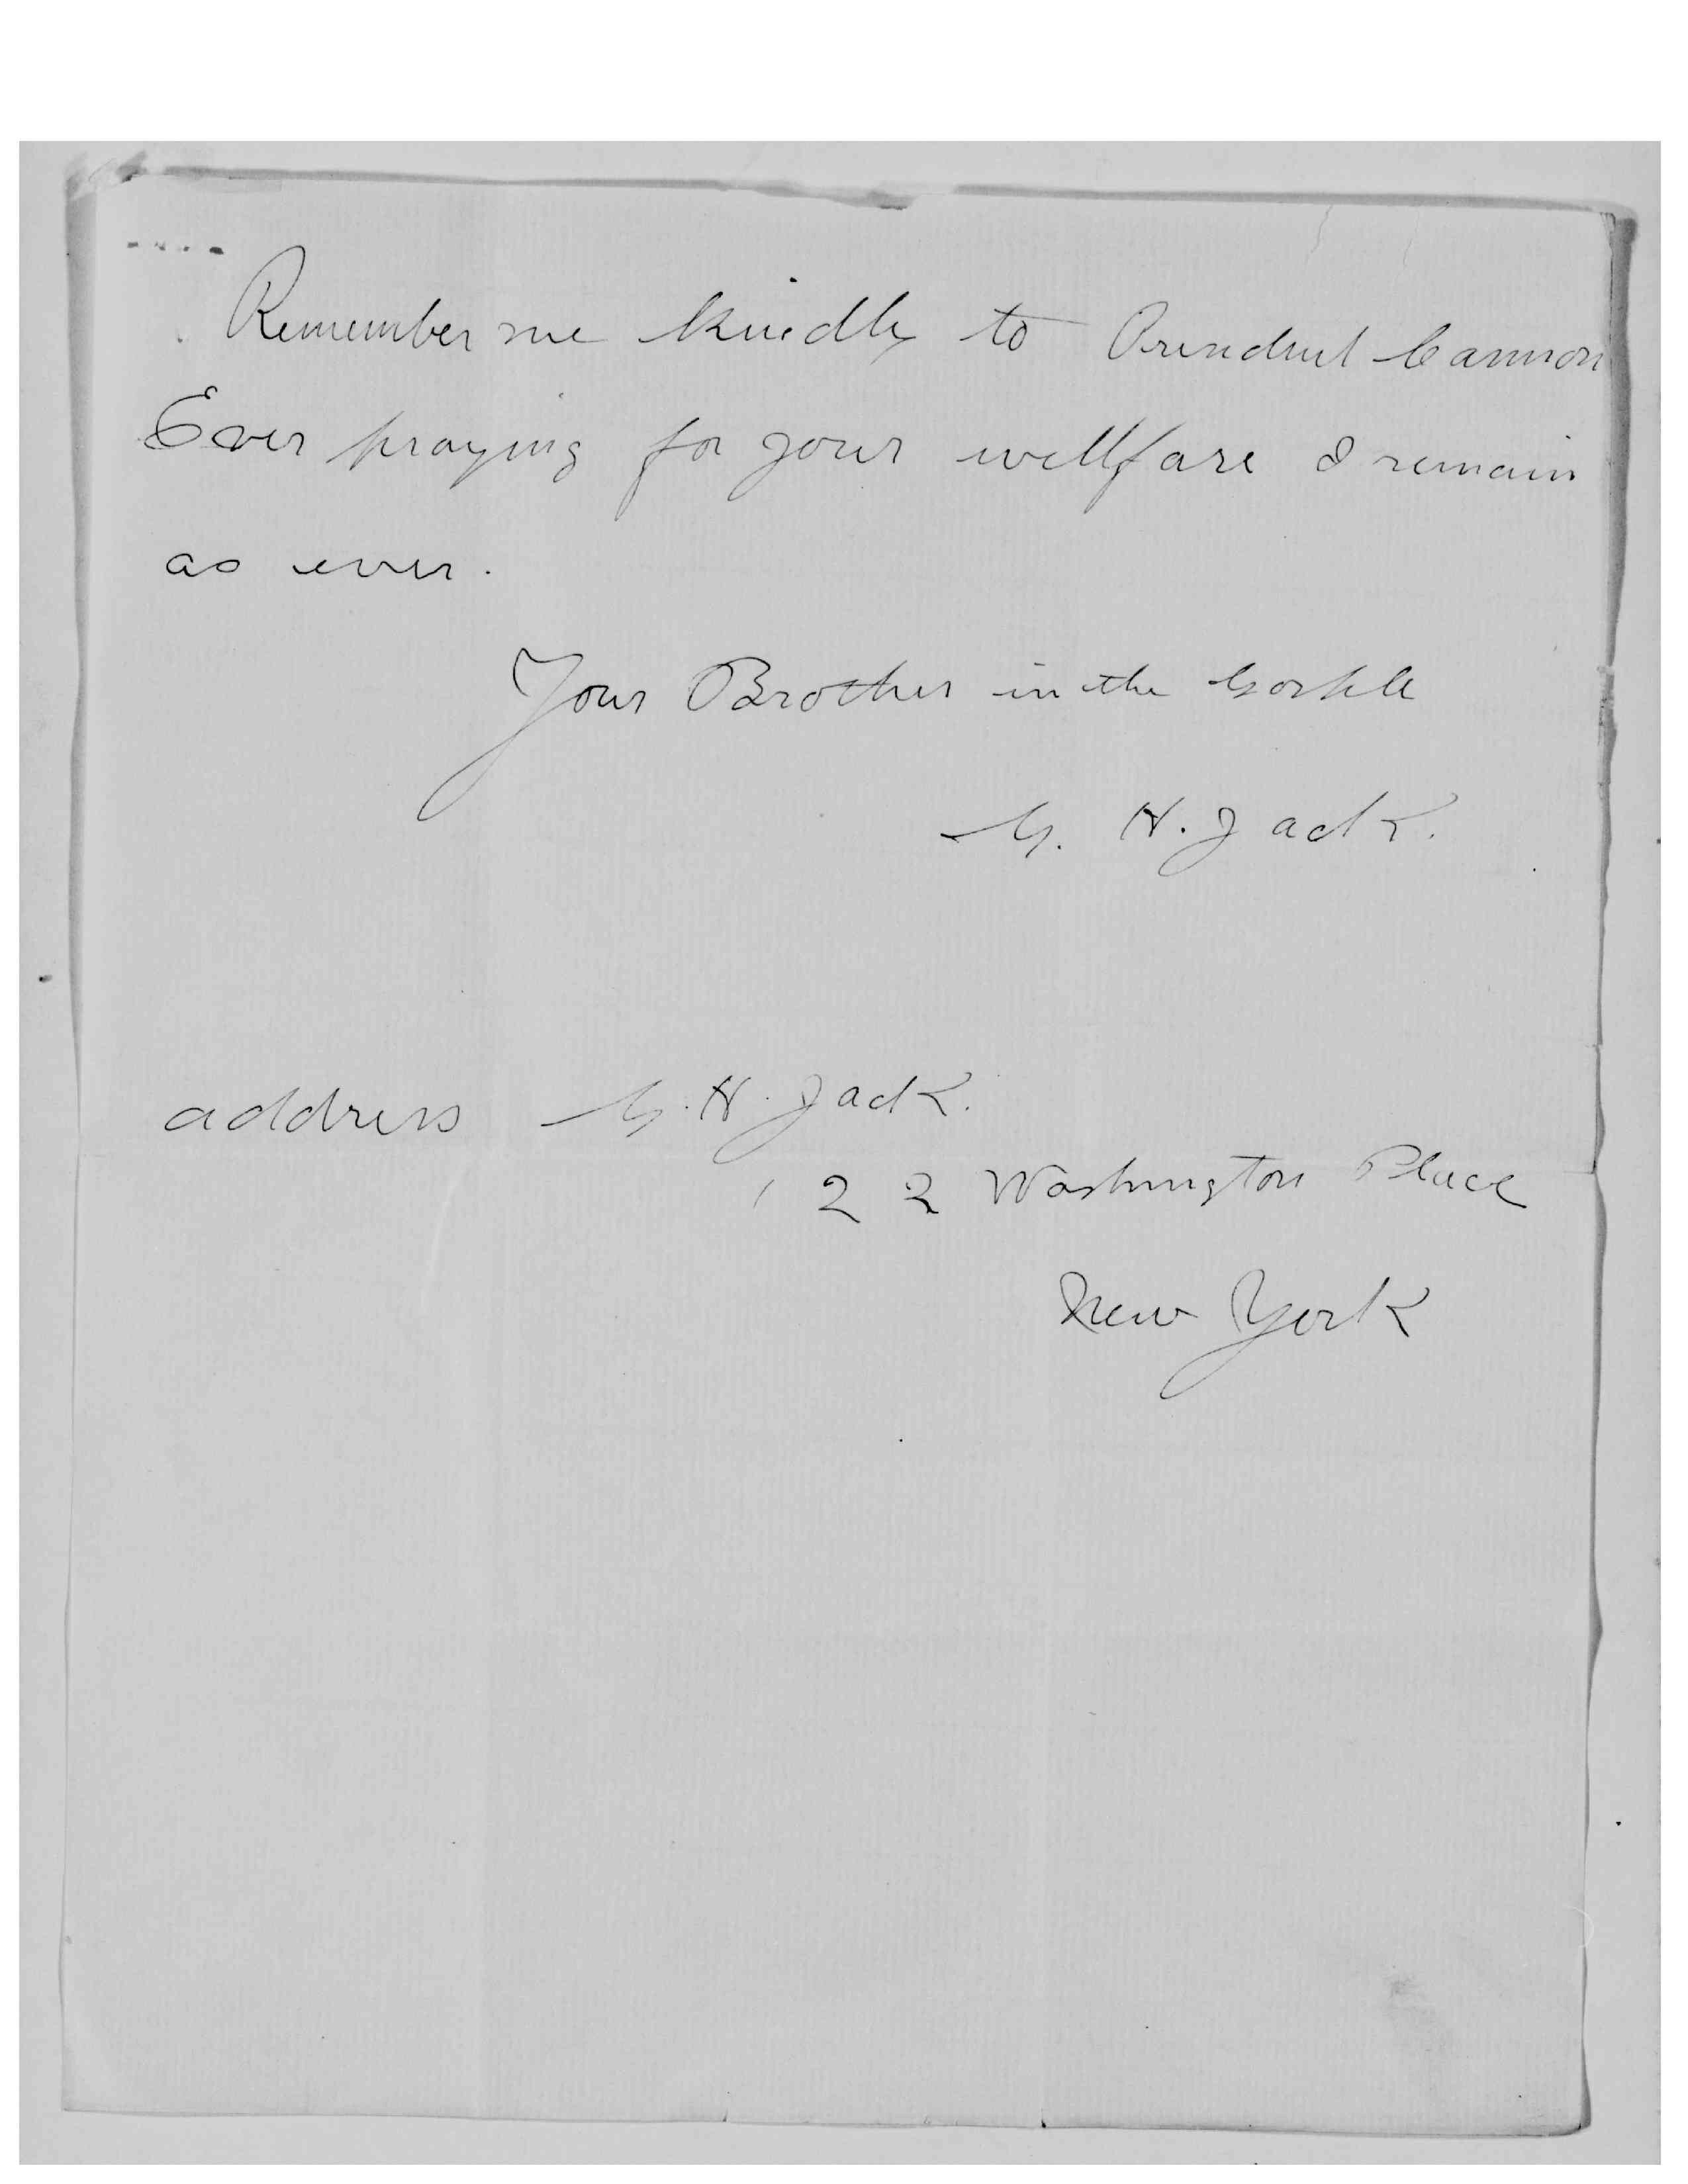 Remember me kindly to President Cannon
Ever praying for your wellfare I remain
as ever.
Your Brother in the Gosple
G. H. Jack.
address G. H. Jack.
122 Washington Place
New York